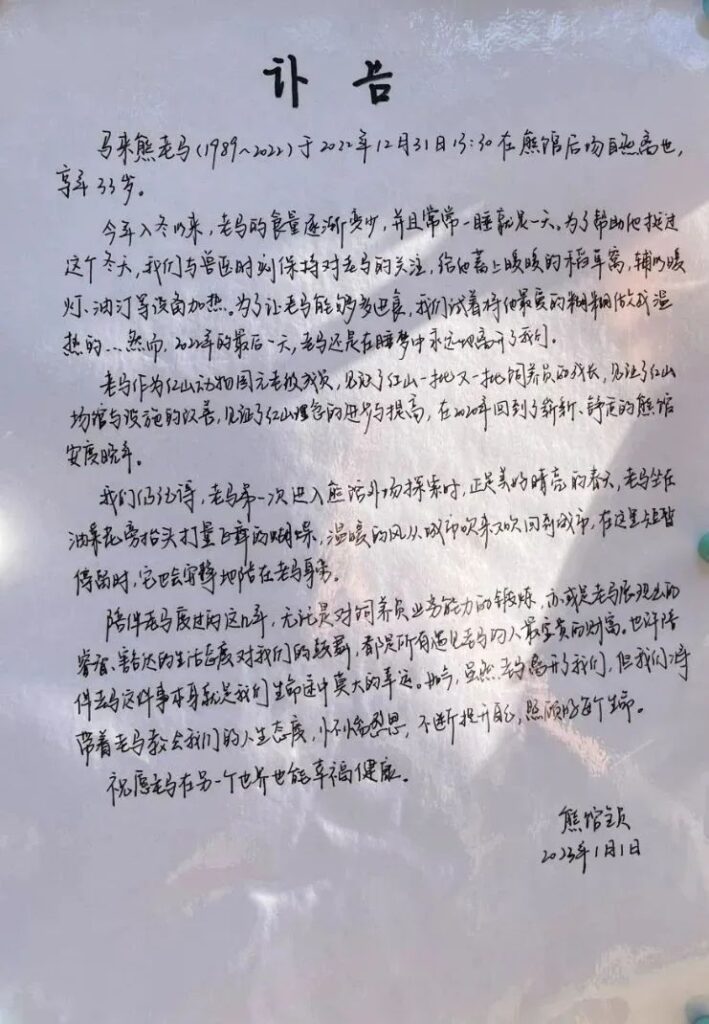 讣 告
马来熊老马(1989~2022)于2022年12月31日13:30在熊馆后场自然离世,
享年33岁。
今年入冬以来,老马的食量逐渐变少,并且常常一睡就是一天。为了帮助他挺过
这个冬天,我们与兽医时刻保持对老马的关注,给他盖上暖暖的稻草窝,辅以暖
灯、油汀等设备加热。为了让老马能够多进食,我们试着将他最爱的粥粥做成温
热的...然而,2022年的最后一天,老马还是在睡梦中永远地离开了我们。
老马作为红山动物园元老级成员,见证了红山一批又一批饲养员的成长,见证了红山
场馆与设施的改善,见证了红山理念的进步与提高,在2020年回到了崭新、舒适的熊馆
安度晚年。
我们仍记得,老马第一次进入熊馆外场探索时,正是美好晴亮的春天,老马坐在
油菜花旁抬头打量飞舞的蝴蝶,温暖的风从城市吹来又吹回到城市,在这里短暂
停留时,它也会安静地陪在老马身旁。
陪伴老马度过的这几年,无论是对饲养员业务能力的锻炼,亦或是老马展现出的
睿智、豁达的生活态度对我们的鼓舞,都是所有遇见老马的人最宝贵的财富。也许陪
伴老马这件事本身就是我们生命途中莫大的幸运。如今,虽然老马离开了我们,但我们将
带着老马教会我们的人生态度,不断提升自己,照顾好每个生命。
祝愿老马在另一个世界也能幸福健康。
熊馆全员
2023年1月1日